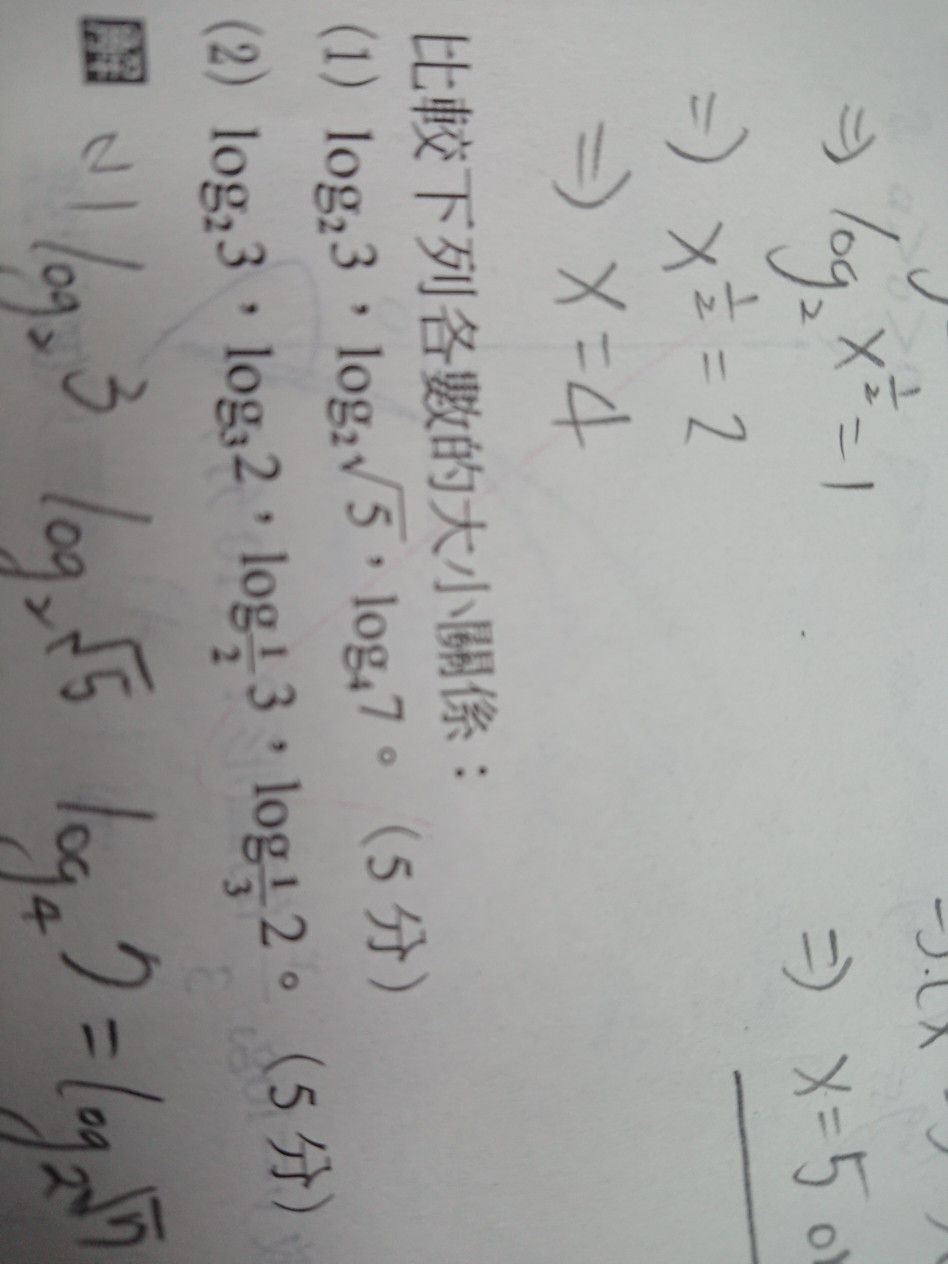 ⇒ log₂ x^{1/2} = 1
⇒ x^{1/2} = 2
⇒ x = 4
⇒ x = 5
比較下列各數的大小關係：
(1) log₂3，log₂√5，log₄7。（5 分）
(2) log₂3，log₃2，log_{1/2}3，log_{1/3}2。（5 分）
log₂3 log₂√5 log₄7 = log₂√7